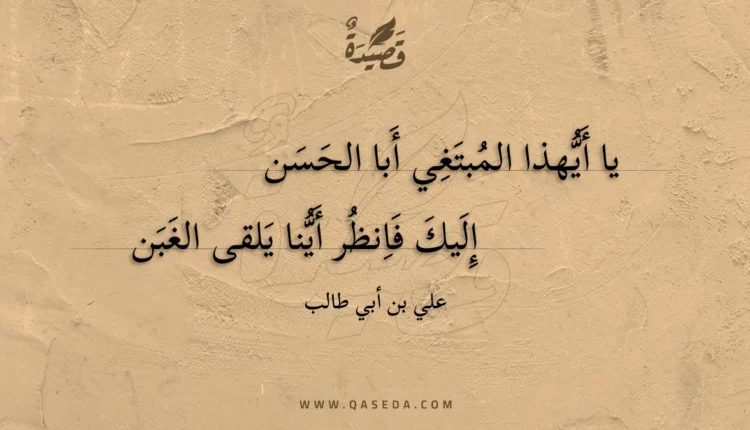 قَصِيدَةٌ
يا أَيُّهذا المُبتَغِي أَبا الحَسَن
إِلَيكَ فَاِنظُر أَيُّنا يَلقى الغَبَن
علي بن أبي طالب
WWW.QASEDA.COM